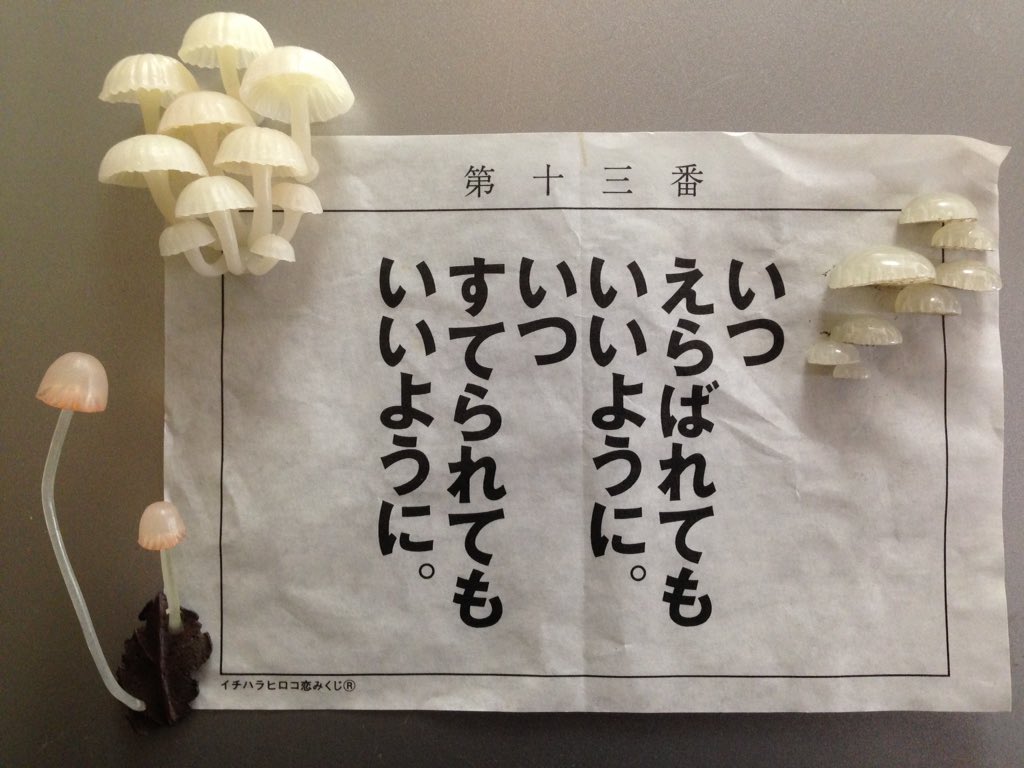 第十三番
いつ
えらばれても
いいように。
いつ
すてられても
いいように。
イチハラヒロコ恋みくじ®